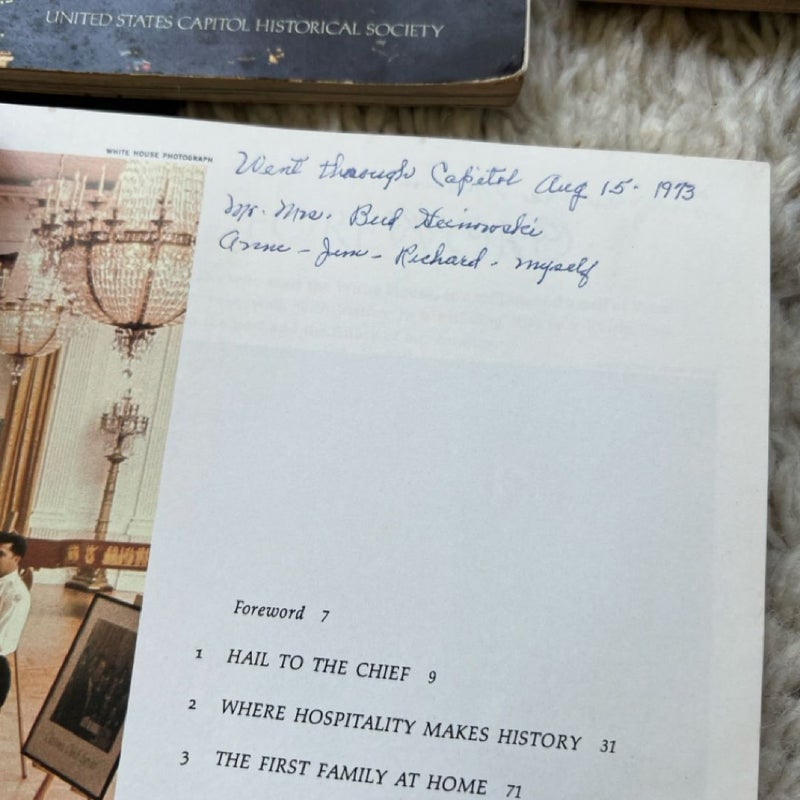 UNITED STATES CAPITOL HISTORICAL SOCIETY
WHITE HOUSE PHOTOGRAPH
Went through Capitol Aug 15 - 1973
Mr. Mrs. Bud
Anne - Jim - Richard - myself
Foreword 7
1 HAIL TO THE CHIEF 9
2 WHERE HOSPITALITY MAKES HISTORY 31
3 THE FIRST FAMILY AT HOME 71